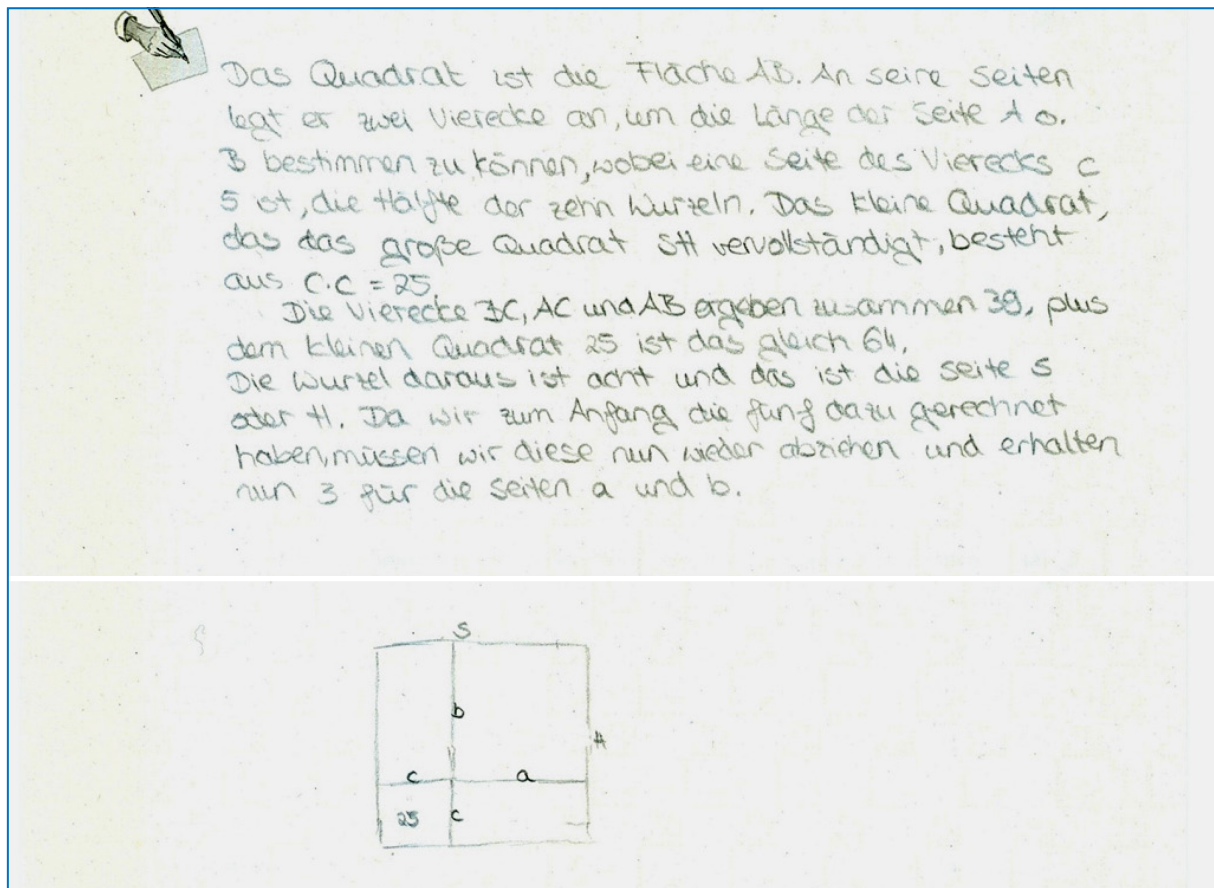 Das Quadrat ist die Fläche AB. An seine Seiten
legt er zwei Vierecke an, um die Länge der Seite A o.
B bestimmen zu können, wobei eine Seite des Vierecks C
5 ist, die Hälfte der zehn Wurzeln. Das kleine Quadrat,
das das große Quadrat SH vervollständigt, besteht
aus C·C = 25
Die Vierecke BC, AC und AB ergeben zusammen 39, plus
dem kleinen Quadrat 25 ist das gleich 64.
Die Wurzel daraus ist acht und das ist die Seite S
oder H. Da wir zum Anfang die fünf dazu gerechnet
haben, müssen wir diese nun wieder abziehen und erhalten
nun 3 für die Seiten a und b.
S
b
H
c a
25 c